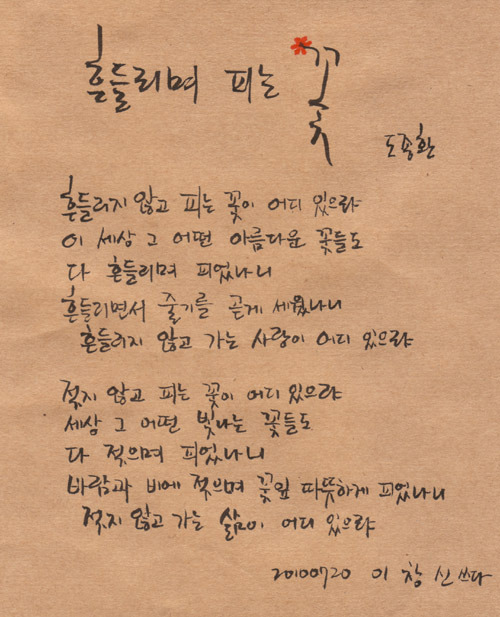 흔들리며 피는 꽃
도종환
흔들리지 않고 피는 꽃이 어디 있으랴
이 세상 그 어떤 아름다운 꽃들도
다 흔들리며 피었나니
흔들리면서 줄기를 곧게 세웠나니
흔들리지 않고 가는 사랑이 어디 있으랴
젖지 않고 피는 꽃이 어디 있으랴
세상 그 어떤 빛나는 꽃들도
다 젖으며 피었나니
바람과 비에 젖으며 꽃잎 따뜻하게 피었나니
젖지 않고 가는 삶이 어디 있으랴
20100720 이 창 신 쓰다